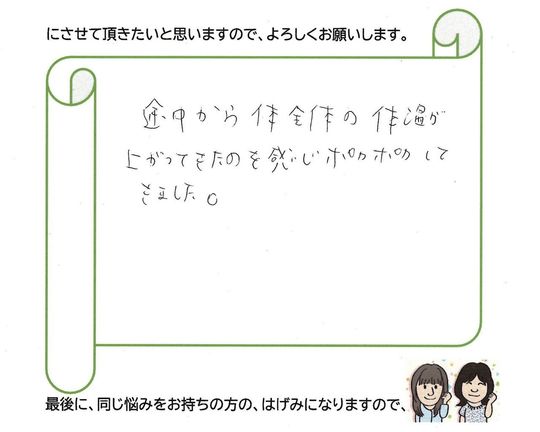 にさせて頂きたいと思いますので、よろしくお願いします。
途中から体全体の体温が
上がってきたのを感じポカポカして
きました。
最後に、同じ悩みをお持ちの方の、はげみになりますので、